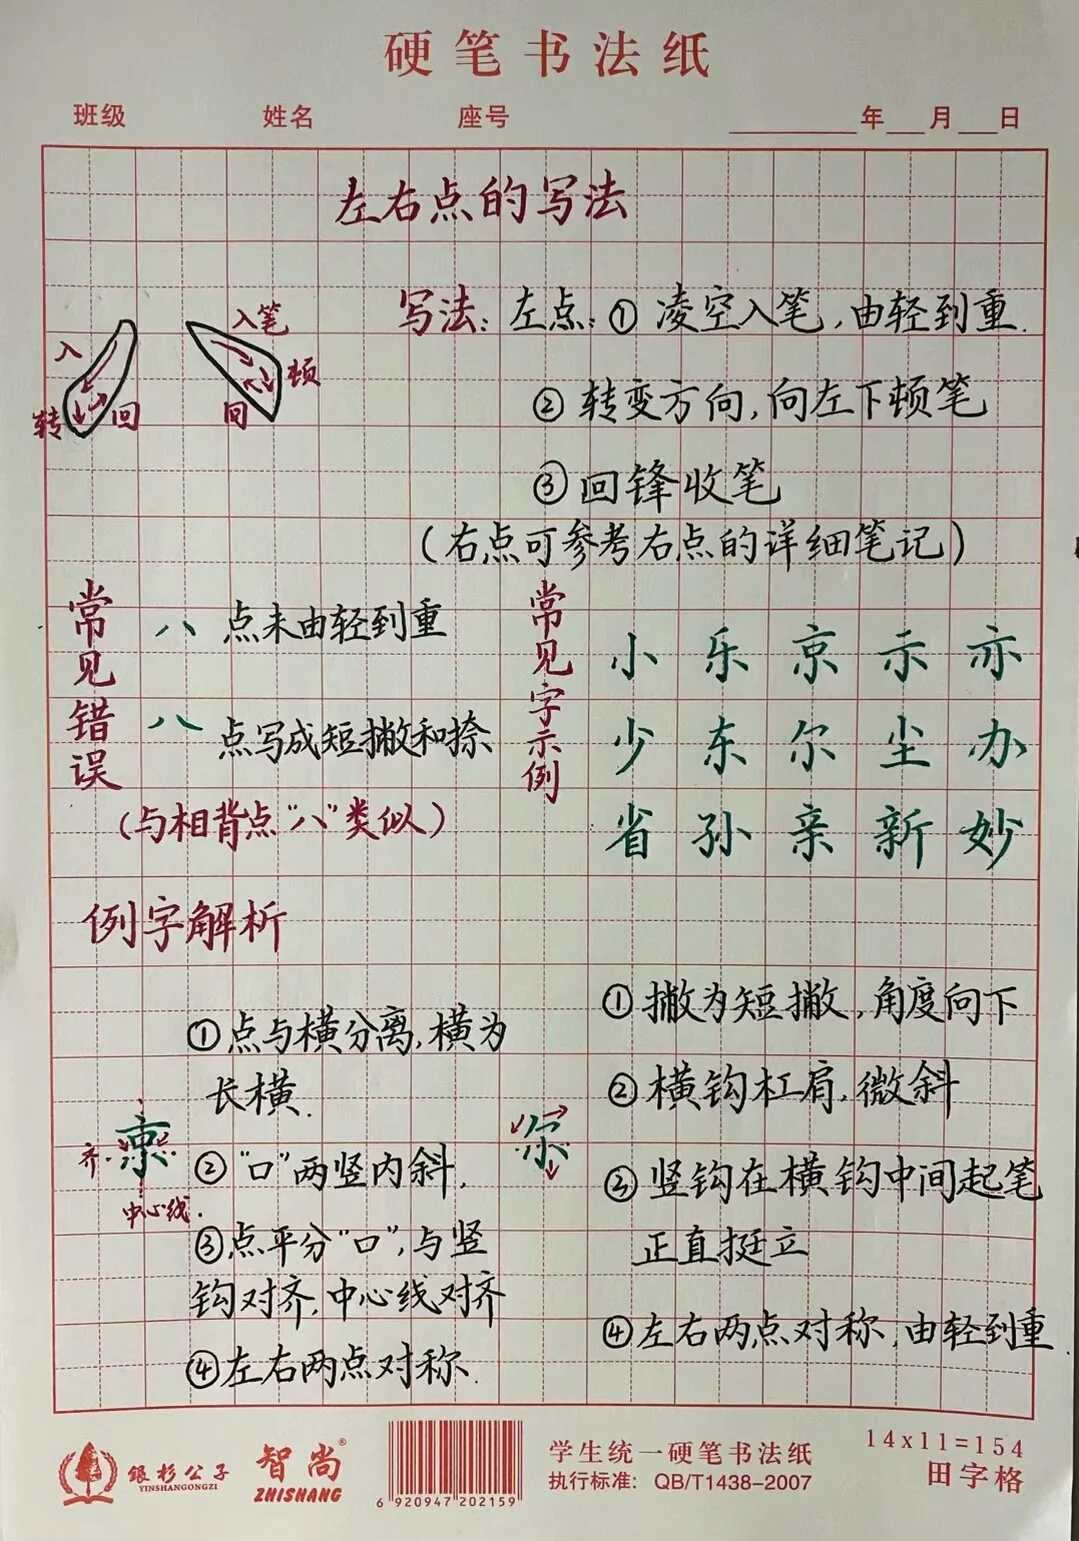 硬笔书法纸
班级 姓名 座号 年 月 日
左右点的写法
入 转 回
入笔 顿 回
写法：左点：① 凌空入笔，由轻到重.
② 转变方向，向左下顿笔
③ 回锋收笔
（右点可参考右点的详细笔记）
常见错误
八 点未由轻到重
八 点写成短撇和捺
（与相背点“八”类似）
常见字示例
小 乐 京 示 亦
少 东 尔 尘 办
省 孙 亲 新 妙
例字解析
京
齐.
中心线.
①点与横分离,横为
长横.
②“口”两竖内斜,
③点平分“口”,与竖
钩对齐,中心线对齐
④左右两点对称.
尔
①撇为短撇,角度向下
②横钩杠肩,微斜
③竖钩在横钩中间起笔
正直挺立
④左右两点对称,由轻到重.
银杉公子
YINSHANGONGZI
智尚®
ZHISHANG
6 920947 202159
学生统一硬笔书法纸
执行标准：QB/T1438-2007
14x11=154
田字格